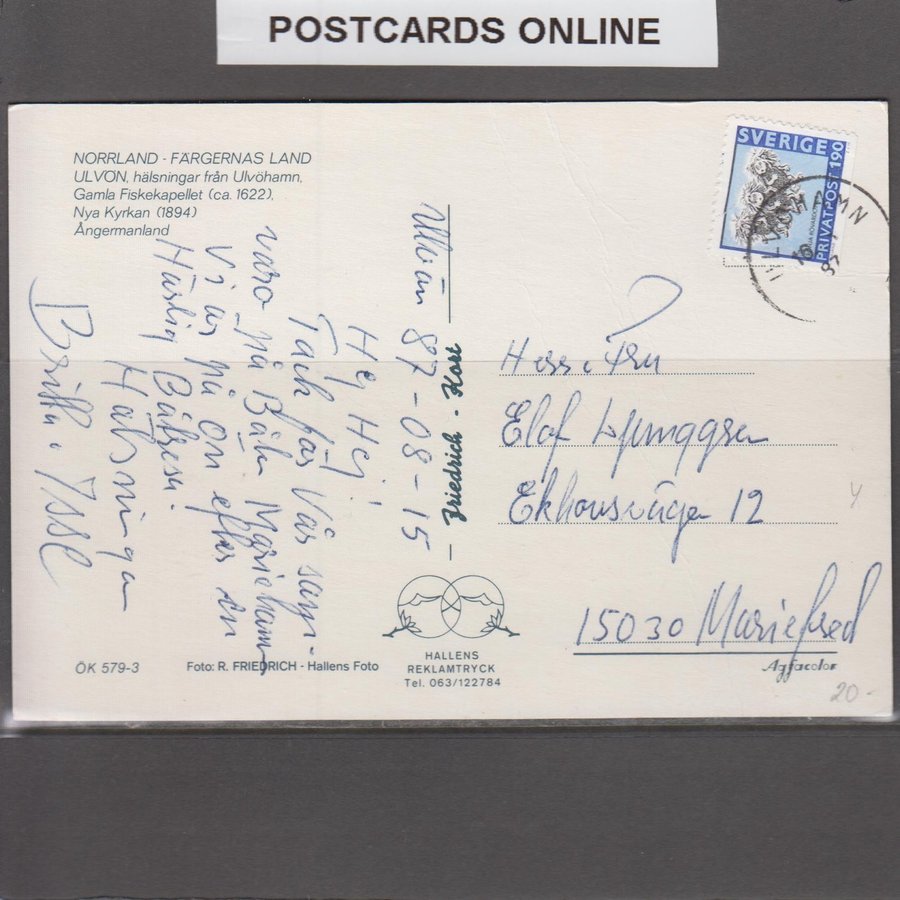 POSTCARDS ONLINE
NORRLAND - FÄRGERNAS LAND
ULVÖN, hälsningar från Ulvöhamn,
Gamla Fiskekapellet (ca. 1622),
Nya Kyrkan (1894)
Ångermanland
SVERIGE
PRIVATPOST 190
Ulvön 87-08-15
Hej Hej!
Tack för Vår sam-
varo på Båtn Mariehamn
Vi är på ön efter en
Härlig Båtresa
Hälsningar
Friedrich - Kort
Herr o Fru
Elof Ljunggren
Ekhovsvägen 12
15030 Mariefred
ÖK 579-3
Foto: R. FRIEDRICH - Hallens Foto
HALLENS
REKLAMTRYCK
Tel. 063/122784
Agfacolor
20-